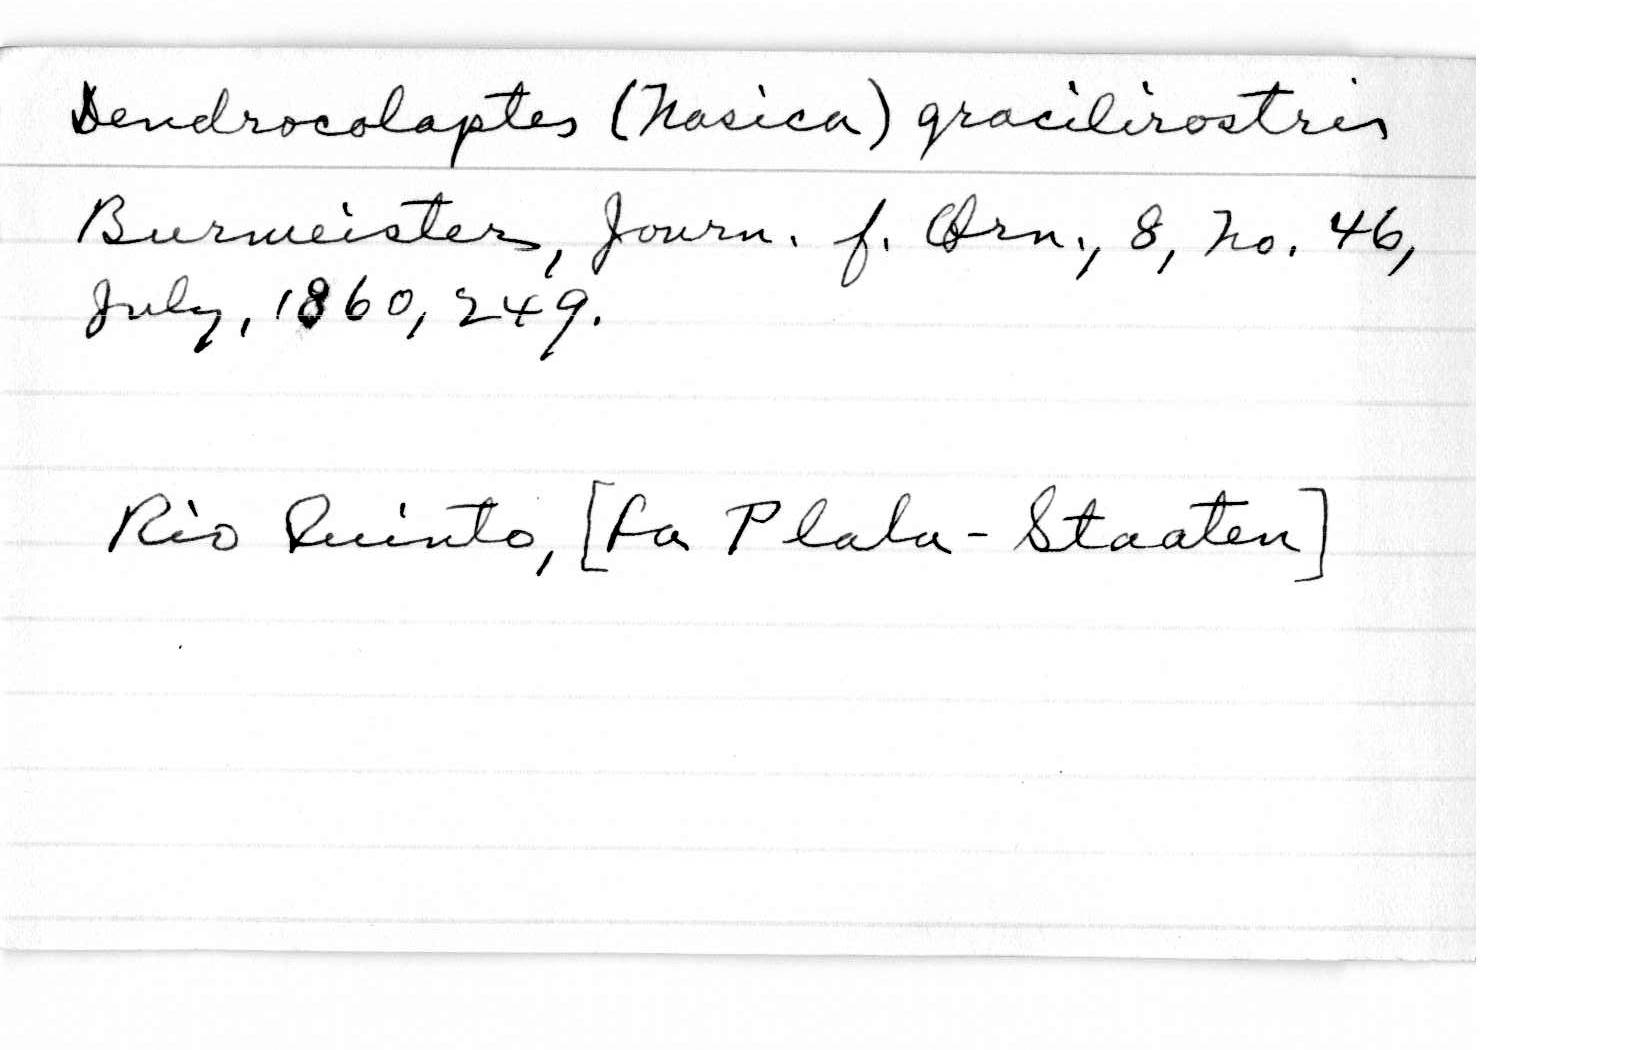 Dendrocolaptes (Nasica) gracilirostris
Burmeister, Journ. f. Orn., 8, no. 46,
July, 1860, 249.
Rio Quinto, [La Plata-Staaten]